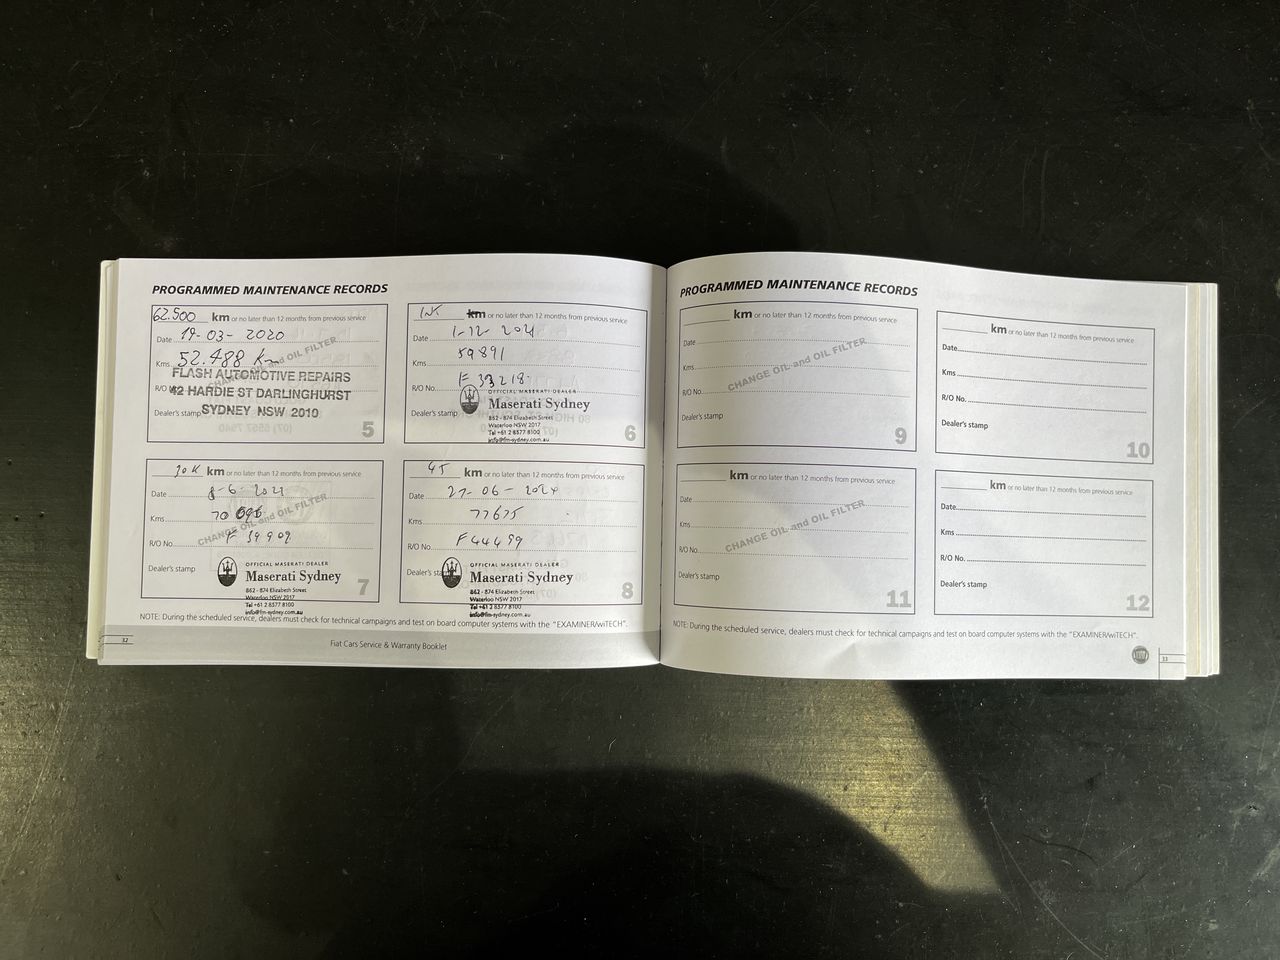 PROGRAMMED MAINTENANCE RECORDS
62.500 km or no later than 12 months from previous service
Date 19-03-2020
Kms 52.488 Km
CHANGE OIL and OIL FILTER
R/O No.
FLASH AUTOMOTIVE REPAIRS
42 HARDIE ST DARLINGHURST
Dealer's stamp SYDNEY NSW 2010
5
km or no later than 12 months from previous service
Date 1-12-2021
Kms 59891
R/O No. F 33218
OFFICIAL MASERATI DEALER
Dealer's stamp Maserati Sydney
862 - 874 Elizabeth Street
Waterloo NSW 2017
Tel +61 2 8577 8100
info@fm-sydney.com.au
6
km or no later than 12 months from previous service
Date
Kms
CHANGE OIL and OIL FILTER
R/O No. F 39909
Dealer's stamp
OFFICIAL MASERATI DEALER
Maserati Sydney
862 - 874 Elizabeth Street
Waterloo NSW 2017
Tel +61 2 8577 8100
info@fm-sydney.com.au
7
45 km or no later than 12 months from previous service
Date 27-06-2024
Kms 77675
R/O No. F44499
Dealer's stamp
OFFICIAL MASERATI DEALER
Maserati Sydney
862 - 874 Elizabeth Street
Waterloo NSW 2017
Tel +61 2 8577 8100
info@fm-sydney.com.au
8
NOTE: During the scheduled service, dealers must check for technical campaigns and test on board computer systems with the "EXAMINER/wiTECH".
32
Fiat Cars Service & Warranty Booklet
PROGRAMMED MAINTENANCE RECORDS
km or no later than 12 months from previous service
Date
Kms
CHANGE OIL and OIL FILTER
R/O No.
Dealer's stamp
9
km or no later than 12 months from previous service
Date
Kms
R/O No.
Dealer's stamp
10
km or no later than 12 months from previous service
Date
Kms
CHANGE OIL and OIL FILTER
R/O No.
Dealer's stamp
11
km or no later than 12 months from previous service
Date
Kms
R/O No.
Dealer's stamp
12
NOTE: During the scheduled service, dealers must check for technical campaigns and test on board computer systems with the "EXAMINER/wiTECH".
33